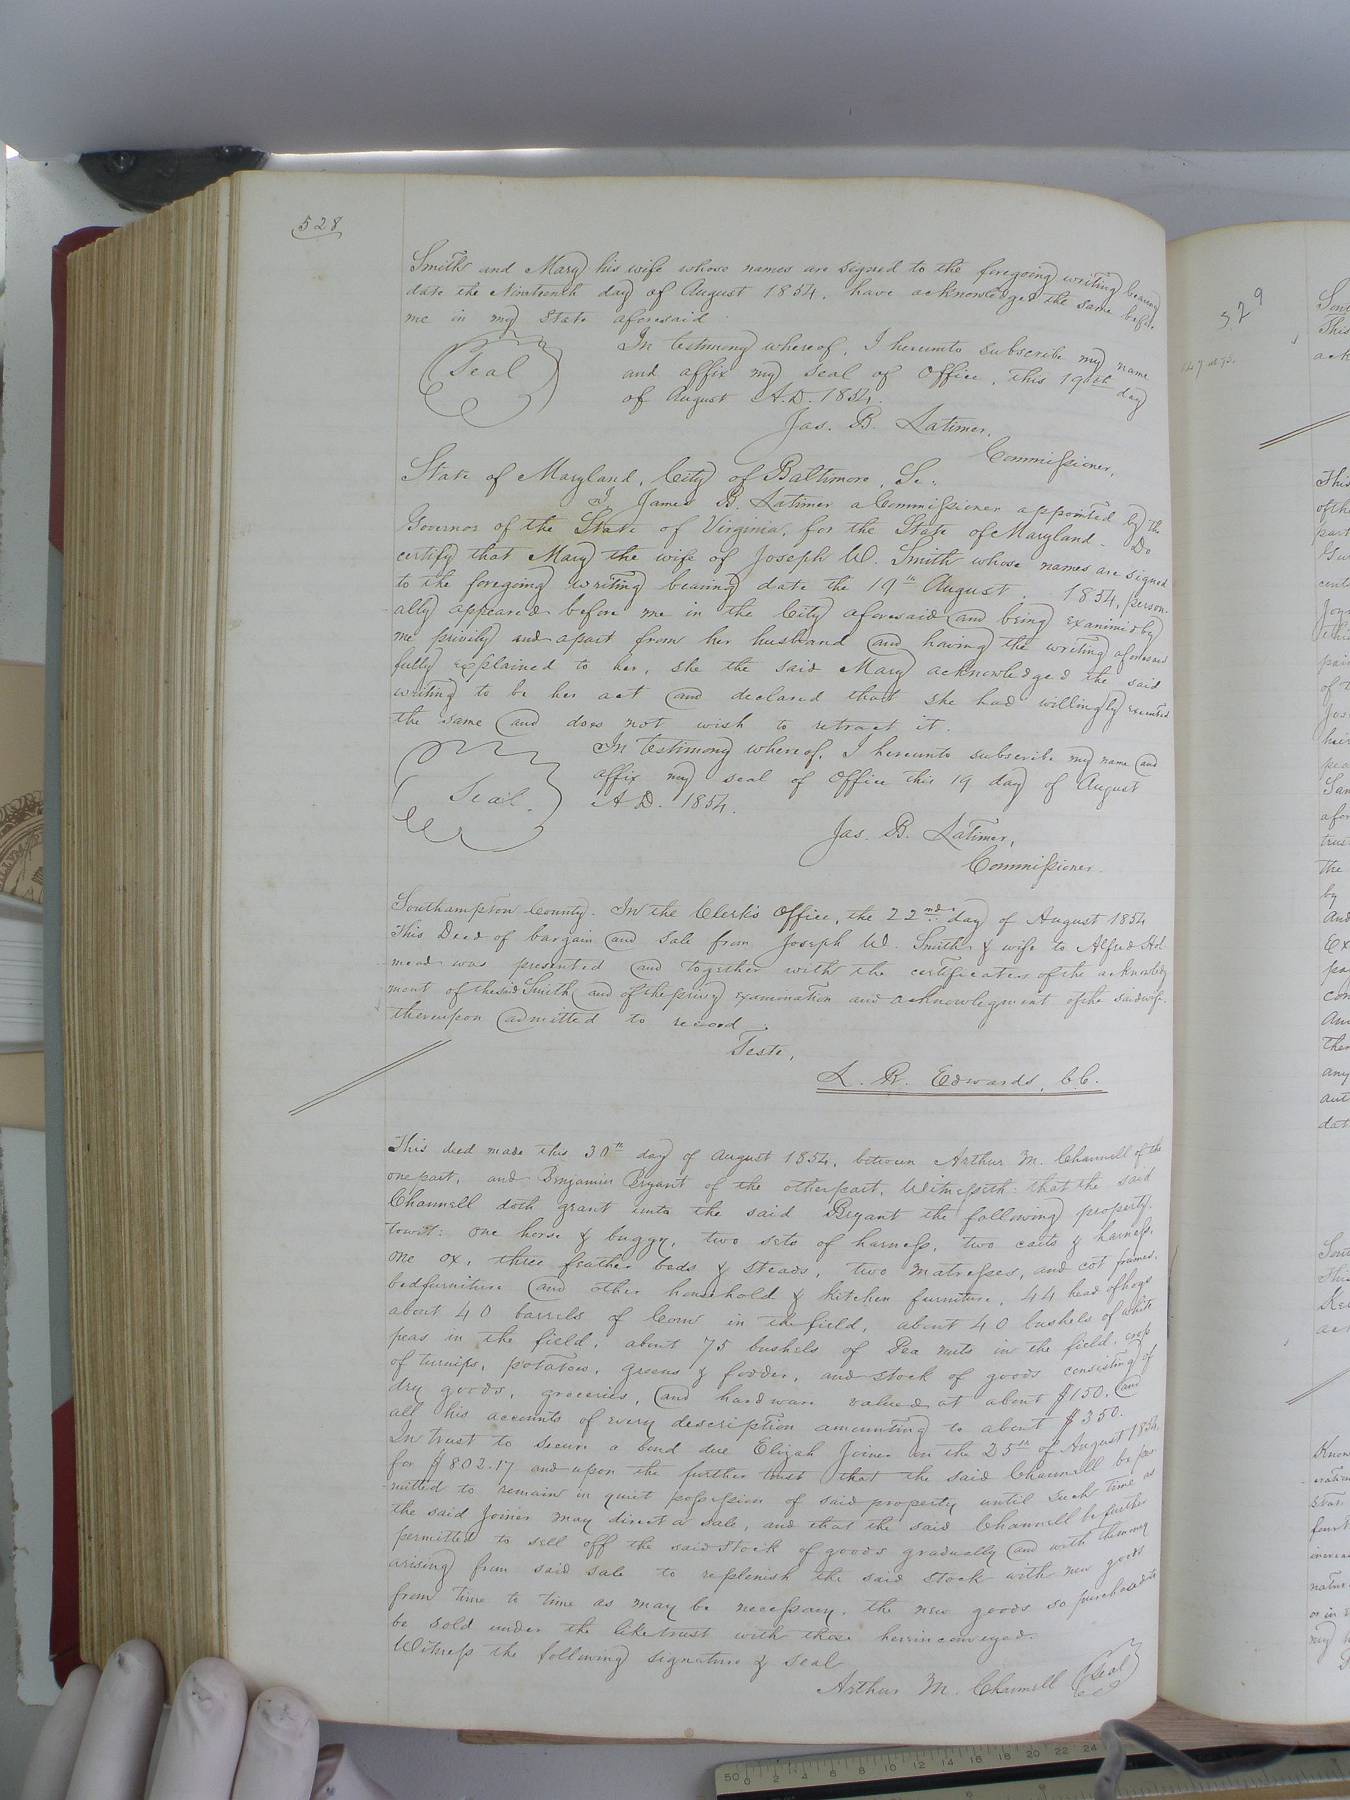 528
Smith and Mary his wife whose names are signed to the foregoing writing bearing
date the Nineteenth day of August 1854. have acknowledged the same before
me in my State aforesaid
Seal
In testimony whereof, I hereunto subscribe my name
and affix my seal of Office, this 19th day
of August A.D. 1854.
Jas. B. Latimer,
Commissioner,
State of Maryland, City of Baltimore, Sc.
I James B. Latimer a Commissioner appointed by the
Governor of the State of Virginia, for the State of Maryland - Do
certify that Mary the wife of Joseph W. Smith whose names are signed
to the foregoing writing bearing date the 19th August. 1854, person-
ally appeared before me in the City aforesaid and being examined by
me privily and apart from her husband and having the writing aforesaid
fully explained to her, she the said Mary acknowledged the said
writing to be her act and declared that she had willingly executed
the same and does not wish to retract it.
Seal.
In testimony whereof, I hereunto subscribe my name and
affix my seal of Office this 19 day of August
A.D. 1854.
Jas. B. Latimer,
Commissioner.
Southampton County. In the Clerk's Office, the 22nd day of August 1854
This Deed of bargain and sale from Joseph W. Smith & wife to Alfred Hol-
mead was presented and together with the certificates of the acknowledg
ment of the said Smith and of the privy examination and acknowlegment of the said wife
thereupon admitted to record.
Teste,
L. R. Edwards, C.C.
This deed made this 30th day of August 1854, between Arthur M. Channell of the
one part, and Benjamin Bryant of the other part, Witnesseth: that the said
Channell doth grant unto the said Bryant the following property.
towit: one horse & buggy, two sets of harness, two carts & harness,
one ox, three feather beds & steads, two matresses, and cot frames,
bedfurniture and other household & kitchen furniture, 44 head of hogs
about 40 barrels of Corn in the field, about 40 bushels of white
peas in the field, about 75 bushels of Pea nuts in the field, crop
of turnips, potatoes, greens & fodder, and stock of goods consisting of
dry goods, groceries, and hardware valued at about $150, and
all his accounts of every description amounting to about $350.
In trust to secure a bond due Elijah Joiner on the 25th of August 1854,
for $802.17 and upon the further trust that the said Channell be per
mitted to remain in quiet possession of said property until such time as
the said Joiner may direct a sale, and that the said Channell be further
permitted to sell off the said stock of goods gradually and with the money
arising from said sale to replenish the said stock with new goods
from time to time as may be necessary. the new goods so purchased to
be sold under the like trust with those herein conveyed.
Witness the following signature & seal
Arthur M. Channell Seal
529